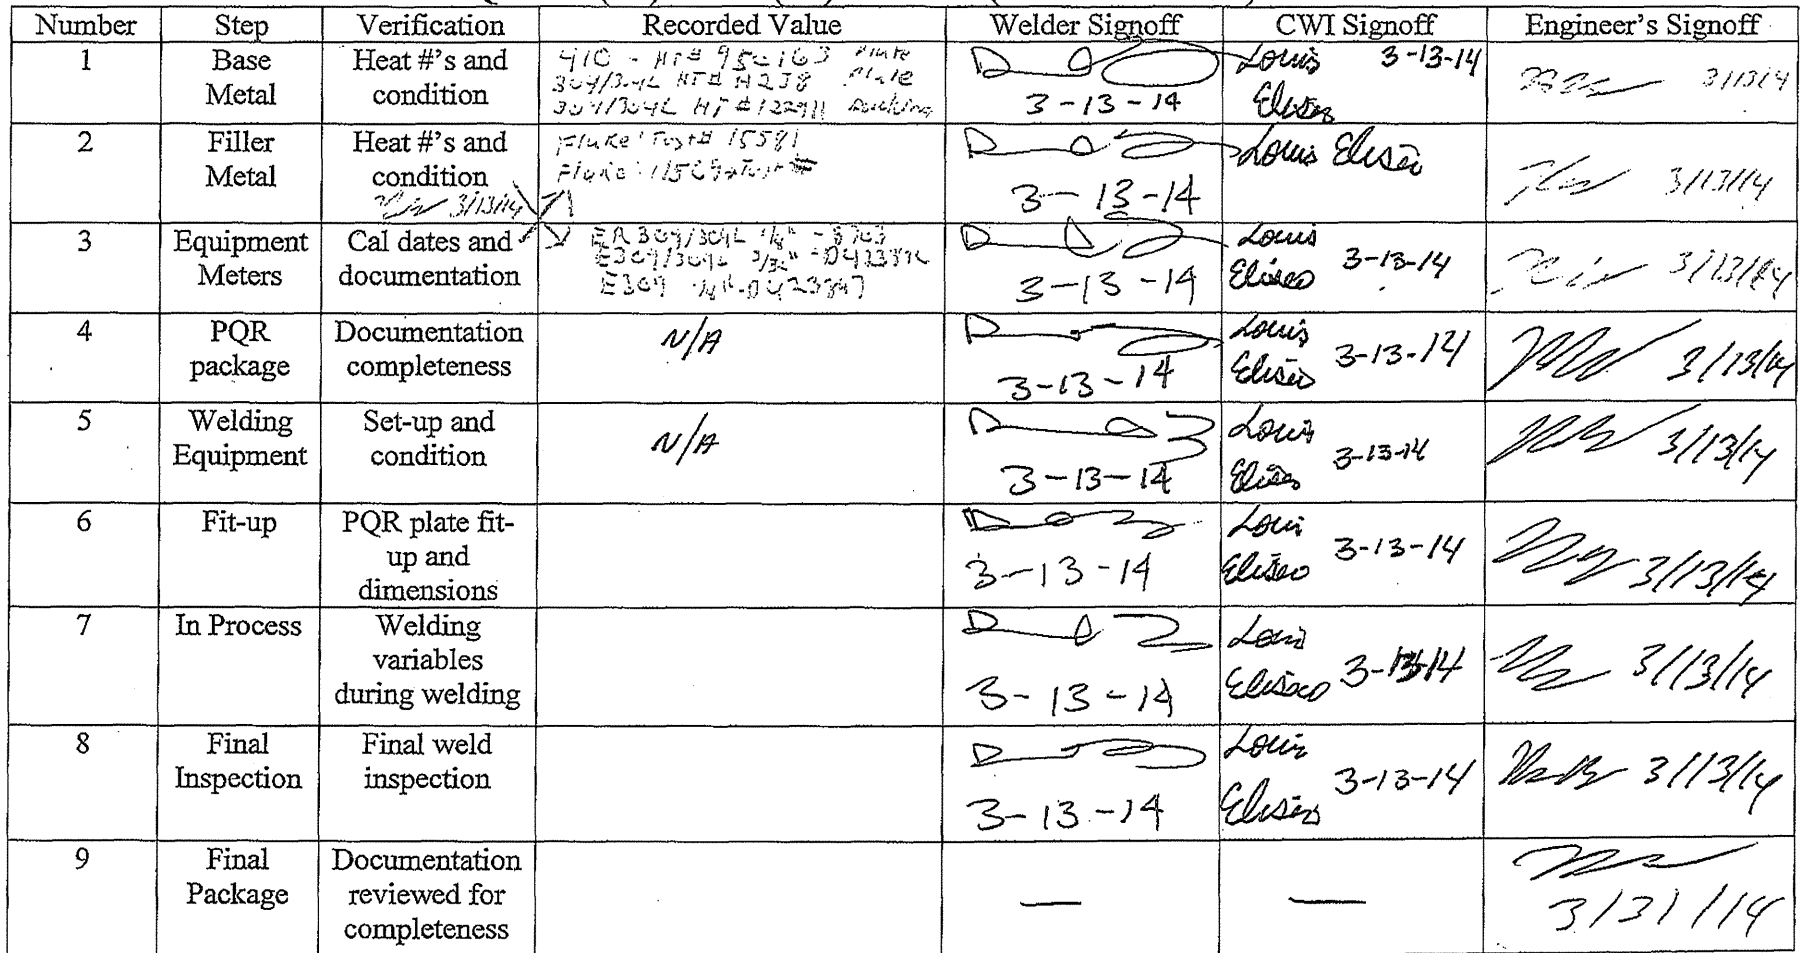 Number Step Verification Recorded Value Welder Signoff CWI Signoff Engineer's Signoff
1 Base Metal Heat #'s and condition
410 - HT# Plate
304/304L HT# Plate
304/304L HT #
3-13-14
Louis Eliseo 3-13-14
3/13/14
2 Filler Metal Heat #'s and condition
3/13/14
Fluke: Test# 15581
Fluke:
3-13-14
Louis Eliseo
3/13/14
3 Equipment Meters Cal dates and documentation
ER 309/309L 1/8" - 
E309/309L 3/32" -
E309 1/8" -
3-13-14
Louis Eliseo 3-13-14
3/13/14
4 PQR package Documentation completeness
N/A
3-13-14
Louis Eliseo 3-13-14
3/13/14
5 Welding Equipment Set-up and condition
N/A
3-13-14
Louis Eliseo 3-13-14
3/13/14
6 Fit-up PQR plate fit-up and dimensions
3-13-14
Louis Eliseo 3-13-14
3/13/14
7 In Process Welding variables during welding
3-13-14
Louis Eliseo 3-13-14
3/13/14
8 Final Inspection Final weld inspection
3-13-14
Louis Eliseo 3-13-14
3/13/14
9 Final Package Documentation reviewed for completeness
—
—
3/31/14